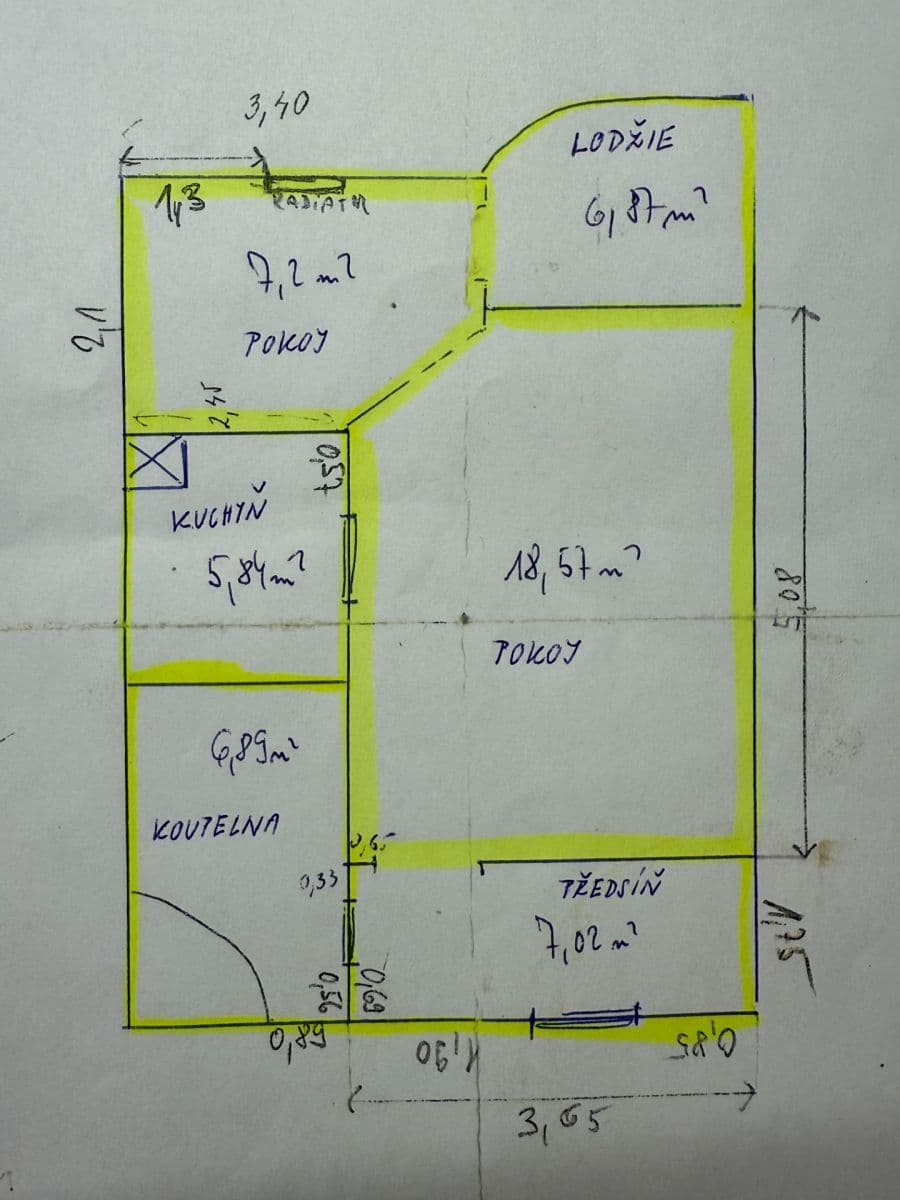 3,40
LODŽIE
1,3
RADIÁTOR
6,87 m²
7,2 m²
2,1
POKOJ
2,45
0,57
KUCHYŇ
5,84 m²
18,57 m²
5,08
POKOJ
6,89 m²
KOUPELNA
0,65
0,33
PŘEDSÍŇ
7,02 m²
1,75
0,56
0,69
0,89
1,90
0,85
3,65